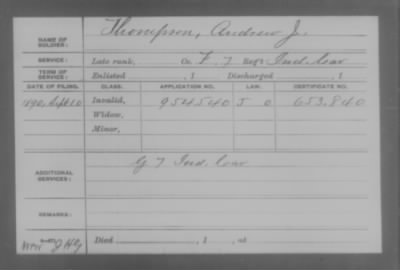 NAME OF SOLDIER: Thompson, Andrew J.
SERVICE: Late rank, Co. F. 7 Reg't Ind. Cav
TERM OF SERVICE: Enlisted , 1 Discharged , 1
DATE OF FILING. CLASS. APPLICATION NO. LAW. CERTIFICATE NO.
1890, Sept 10 Invalid, 954540 J 0 653,840
Widow,
Minor,
ADDITIONAL SERVICES: G 7 Ind. Cav
REMARKS:
Died , 1 , at